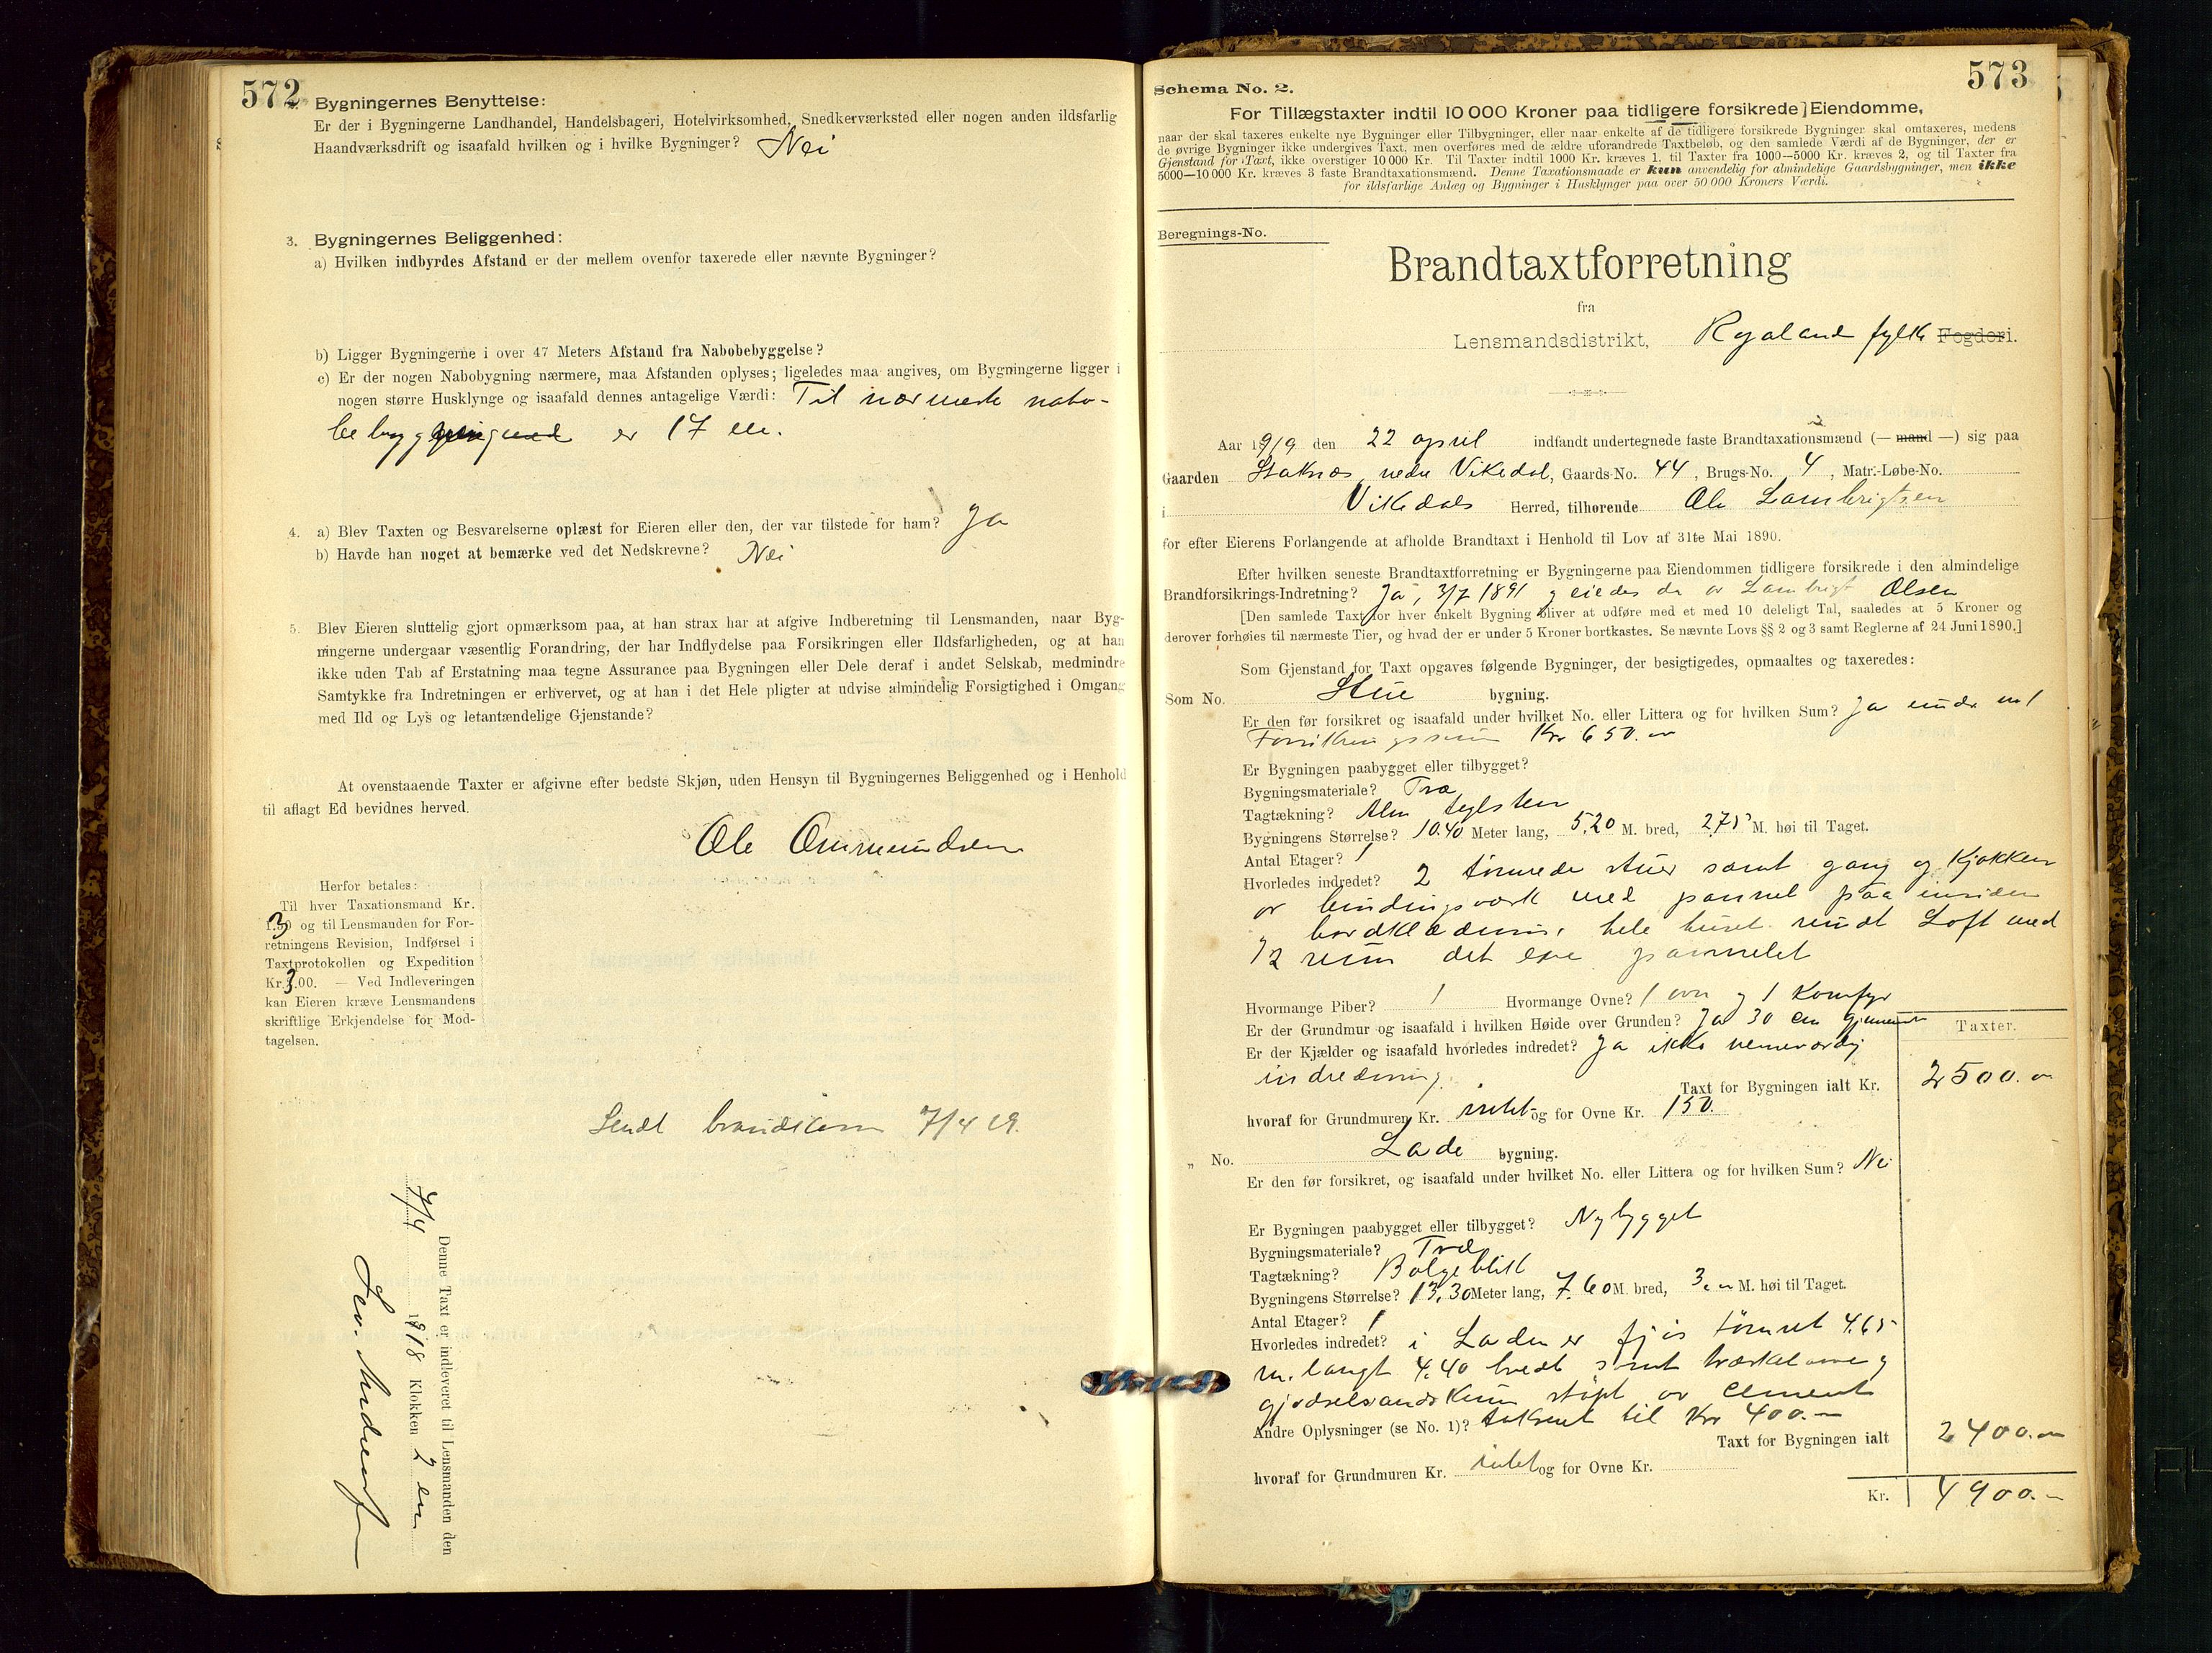 572
2. Bygningernes Benyttelse:
Er der i Bygningerne Landhandel, Handelsbageri, Hotelvirksomhed, Snedkerværksted eller nogen anden ildsfarlig
Haandværksdrift og isaafald hvilken og i hvilke Bygninger? Nei
3. Bygningernes Beliggenhed:
a) Hvilken indbyrdes Afstand er der mellem ovenfor taxerede eller nævnte Bygninger?
b) Ligger Bygningerne i over 47 Meters Afstand fra Nabobebyggelse?
c) Er der nogen Nabobygning nærmere, maa Afstanden oplyses; ligeledes maa angives, om Bygningerne ligger i
nogen større Husklynge og isaafald dennes antagelige Værdi: Til nærmeste nabo-
er 17 m.
4. a) Blev Taxten og Besvarelserne oplæst for Eieren eller den, der var tilstede for ham? Ja
b) Havde han noget at bemærke ved det Nedskrevne? Nei
5. Blev Eieren sluttelig gjort opmærksom paa, at han strax har at afgive Indberetning til Lensmanden, naar Byg-
ningerne undergaar væsentlig Forandring, der har Indflydelse paa Forsikringen eller Ildsfarligheden, og at han
ikke uden Tab af Erstatning maa tegne Assurance paa Bygningen eller Dele deraf i andet Selskab, medmindre
Samtykke fra Indretningen er erhvervet, og at han i det Hele pligter at udvise almindelig Forsigtighed i Omgang
med Ild og Lys og letantændelige Gjenstande?
At ovenstaaende Taxter er afgivne efter bedste Skjøn, uden Hensyn til Bygningernes Beliggenhed og i Henhold
til aflagt Ed bevidnes herved.
Ole Ommundsen
Herfor betales:
Til hver Taxationsmand Kr.
3 og til Lensmanden for For-
retningens Revision, Indførsel i
Taxtprotokollen og Expedition
Kr. 3.00. — Ved Indleveringen
kan Eieren kræve Lensmandens
skriftlige Erkjendelse for Mod-
tagelsen.
Sendt 7/4 19.
Denne Taxt er indleveret til Lensmanden den
7/4 1918 Klokken 2 em
573
Schema No. 2.
For Tillægstaxter indtil 10 000 Kroner paa tidligere forsikrede] Eiendomme,
naar der skal taxeres enkelte nye Bygninger eller Tilbygninger, eller naar enkelte af de tidligere forsikrede Bygninger skal omtaxeres, medens
de øvrige Bygninger ikke undergives Taxt, men overføres med de ældre uforandrede Taxtbeløb, og den samlede Værdi af de Bygninger, der er
Gjenstand for Taxt, ikke overstiger 10 000 Kr. Til Taxter indtil 1000 Kr. kræves 1, til Taxter fra 1000—5000 Kr. kræves 2, og til Taxter fra
5000—10 000 Kr. kræves 3 faste Brandtaxationsmænd. Denne Taxationsmaade er kun anvendelig for almindelige Gaardsbygninger, men ikke
for ildsfarlige Anlæg og Bygninger i Husklynger paa over 50 000 Kroners Værdi.
Beregnings-No.
Brandtaxtforretning
fra
Lensmandsdistrikt, Rogaland fylke Fogderi.
Aar 1919 den 22 april indfandt undertegnede faste Brandtaxationsmænd (— mand —) sig paa
Gaarden nedre Vikedal, Gaards-No. 44, Brugs-No. 4, Matr.-Løbe-No.
i Vikedals Herred, tilhørende Ole Lambrigtsen
for efter Eierens Forlangende at afholde Brandtaxt i Henhold til Lov af 31te Mai 1890.
Efter hvilken seneste Brandtaxtforretning er Bygningerne paa Eiendommen tidligere forsikrede i den almindelige
Brandforsikrings-Indretning? Ja, 3/7 1891 og eiedes da av Lambrigt Olsen
[Den samlede Taxt for hver enkelt Bygning bliver at udføre med et med 10 deleligt Tal, saaledes at 5 Kroner og
derover forhøies til nærmeste Tier, og hvad der er under 5 Kroner bortkastes. Se nævnte Lovs §§ 2 og 3 samt Reglerne af 24 Juni 1890.]
Som Gjenstand for Taxt opgaves følgende Bygninger, der besigtigedes, opmaaltes og taxeredes:
Som No. Stue bygning.
Er den før forsikret og isaafald under hvilket No. eller Littera og for hvilken Sum? Ja under no 1
Forsikringssum Kr 650.
Er Bygningen paabygget eller tilbygget?
Bygningsmateriale? Træ
Tagtækning? Alm teglsten
Bygningens Størrelse? 10.40 Meter lang, 5.20 M. bred, 2.75 M. høi til Taget.
Antal Etager? 1
Hvorledes indredet? 2 tømrede stuer samt gang og kjøkken
av bindingsværk med pannel paa insiden
bordklædning hele huset rundt Loft med
2 rum det ene pannelet
Hvormange Piber? 1 Hvormange Ovne? 1 ovn og 1 Komfyr
Er der Grundmur og isaafald i hvilken Høide over Grunden? Ja 30 cm
Er der Kjælder og isaafald hvorledes indredet? Ja ikke nevneværdig
indredning.
Taxter.
Taxt for Bygningen ialt Kr. 2500.
hvoraf for Grundmuren Kr. intet og for Ovne Kr. 150.
„ No. Lade bygning.
Er den før forsikret, og isaafald under hvilket No. eller Littera og for hvilken Sum? Nei
Er Bygningen paabygget eller tilbygget? Nybygget
Bygningsmateriale? Træ
Tagtækning? Bølgeblik
Bygningens Størrelse? 13.30 Meter lang, 7.60 M. bred, 3. M. høi til Taget.
Antal Etager? 1
Hvorledes indredet? i Laden er fjøs tømret 4.65
m. langt 4.40 bredt samt og
gjødselvandskum støpt av cement
Andre Oplysninger (se No. 1)? taksert til Kr 400.—
Taxt for Bygningen ialt 2400.
hvoraf for Grundmuren Kr. intet og for Ovne Kr.
Kr. 4900.—